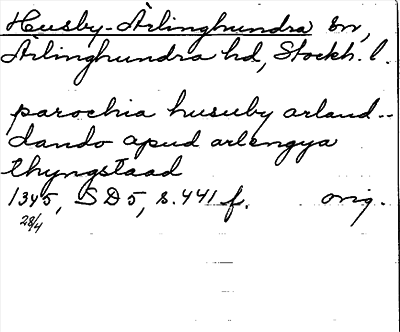 Husby-Ärlinghundra sn,
Ärlinghundra hd, Stockh. l.
parochia husuby arland--
dando apud arlengya
thyngstaad
1345, SD5, s. 441 f. orig.
28/4